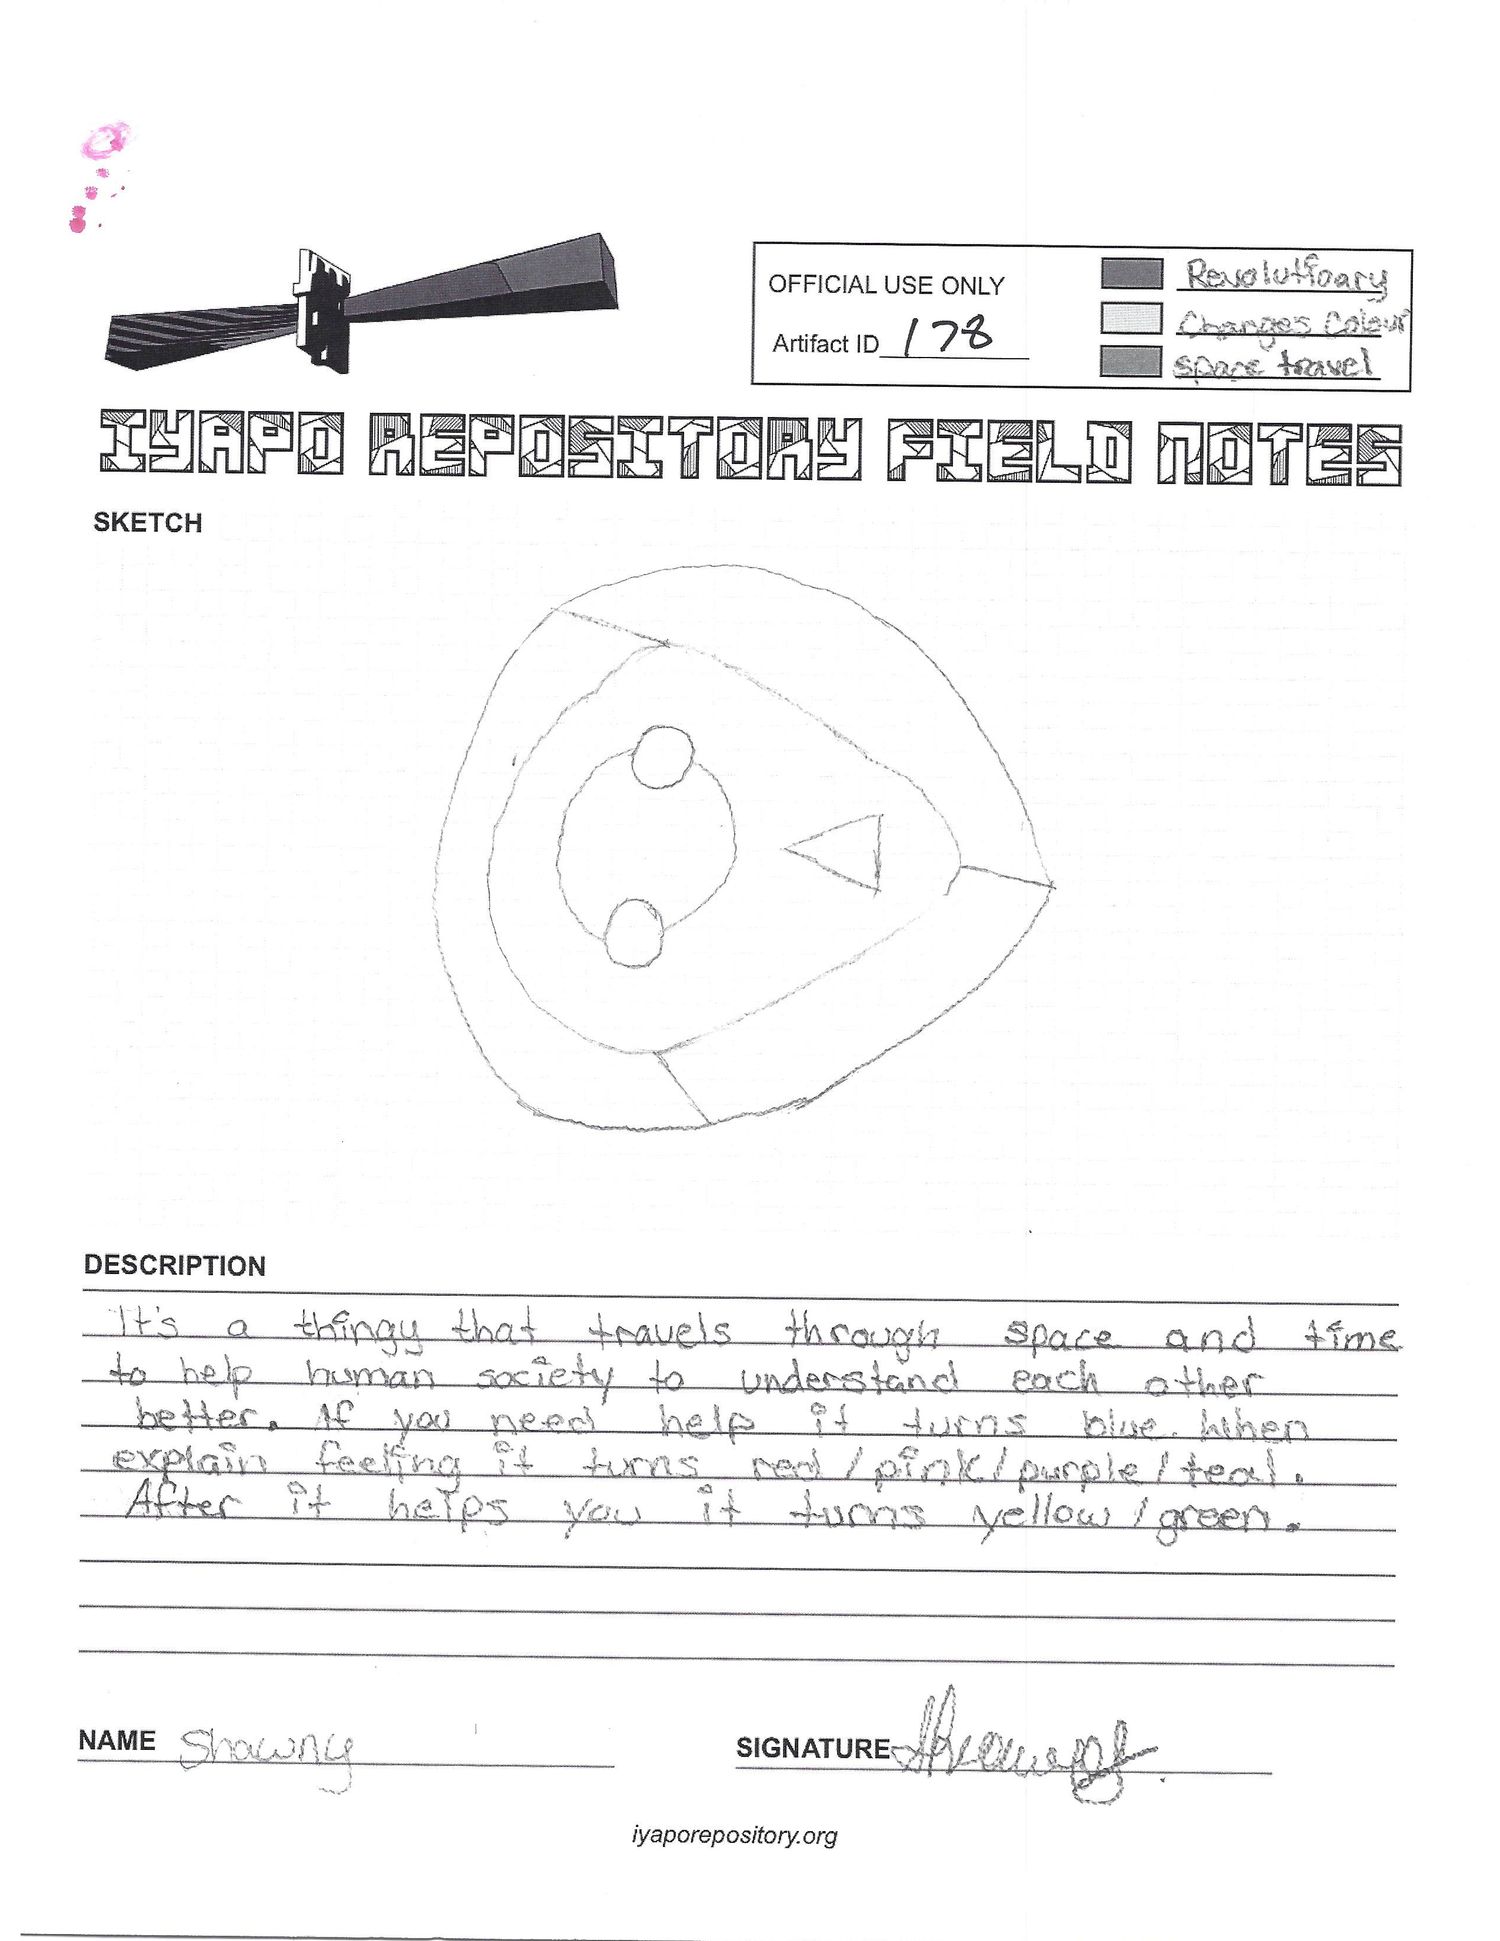 OFFICIAL USE ONLY
Artifact ID 178
Revolutioary
Changes Colour
space travel
IYAPO REPOSITORY FIELD NOTES
SKETCH
DESCRIPTION
It's a thingy that travels through space and time
to help human society to understand each other
better. If you need help it turns blue. When
explain feeling it turns red/pink/purple/teal.
After it helps you it turns yellow/green.
NAME Shawny
SIGNATURE Shawny
iyaporepository.org